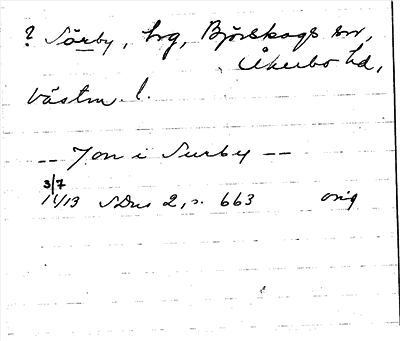 ? Sörby, hrg, Björskogs sn,
Åkerbo hd,
Västm. l.
-- Jon i Surby --
3/7
1413 SDns 2, s. 663 orig